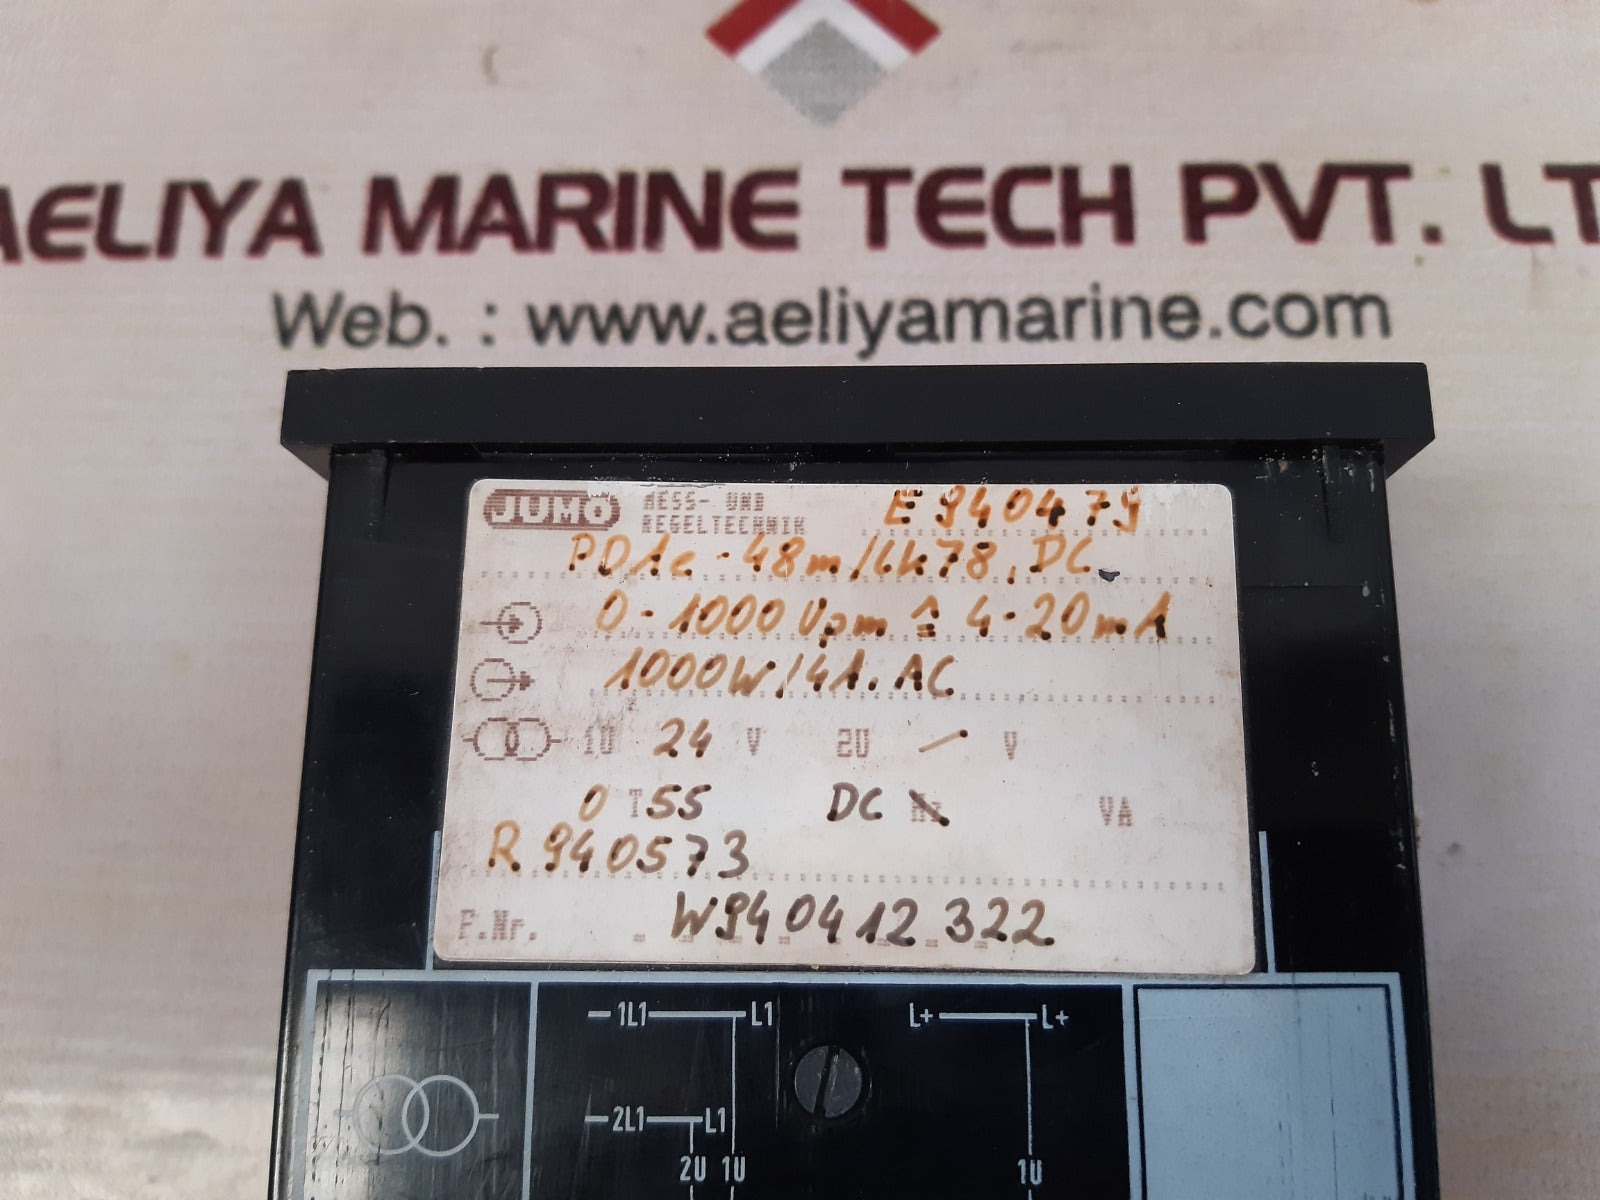 AELIYA MARINE TECH PVT. LT
Web. : www.aeliyamarine.com
JUMO MESS- UND E940479
REGELTECHNIK
PD1c-48m/ 78, DC
0-1000Vpm ≙ 4-20mA
1000W/4A.AC
1U 24 V 2U / V
0 T55 DC Hz VA
R 940573
F.Nr. W940412322
1L1 L1 L+ L+
2L1 L1
2U 1U 1U